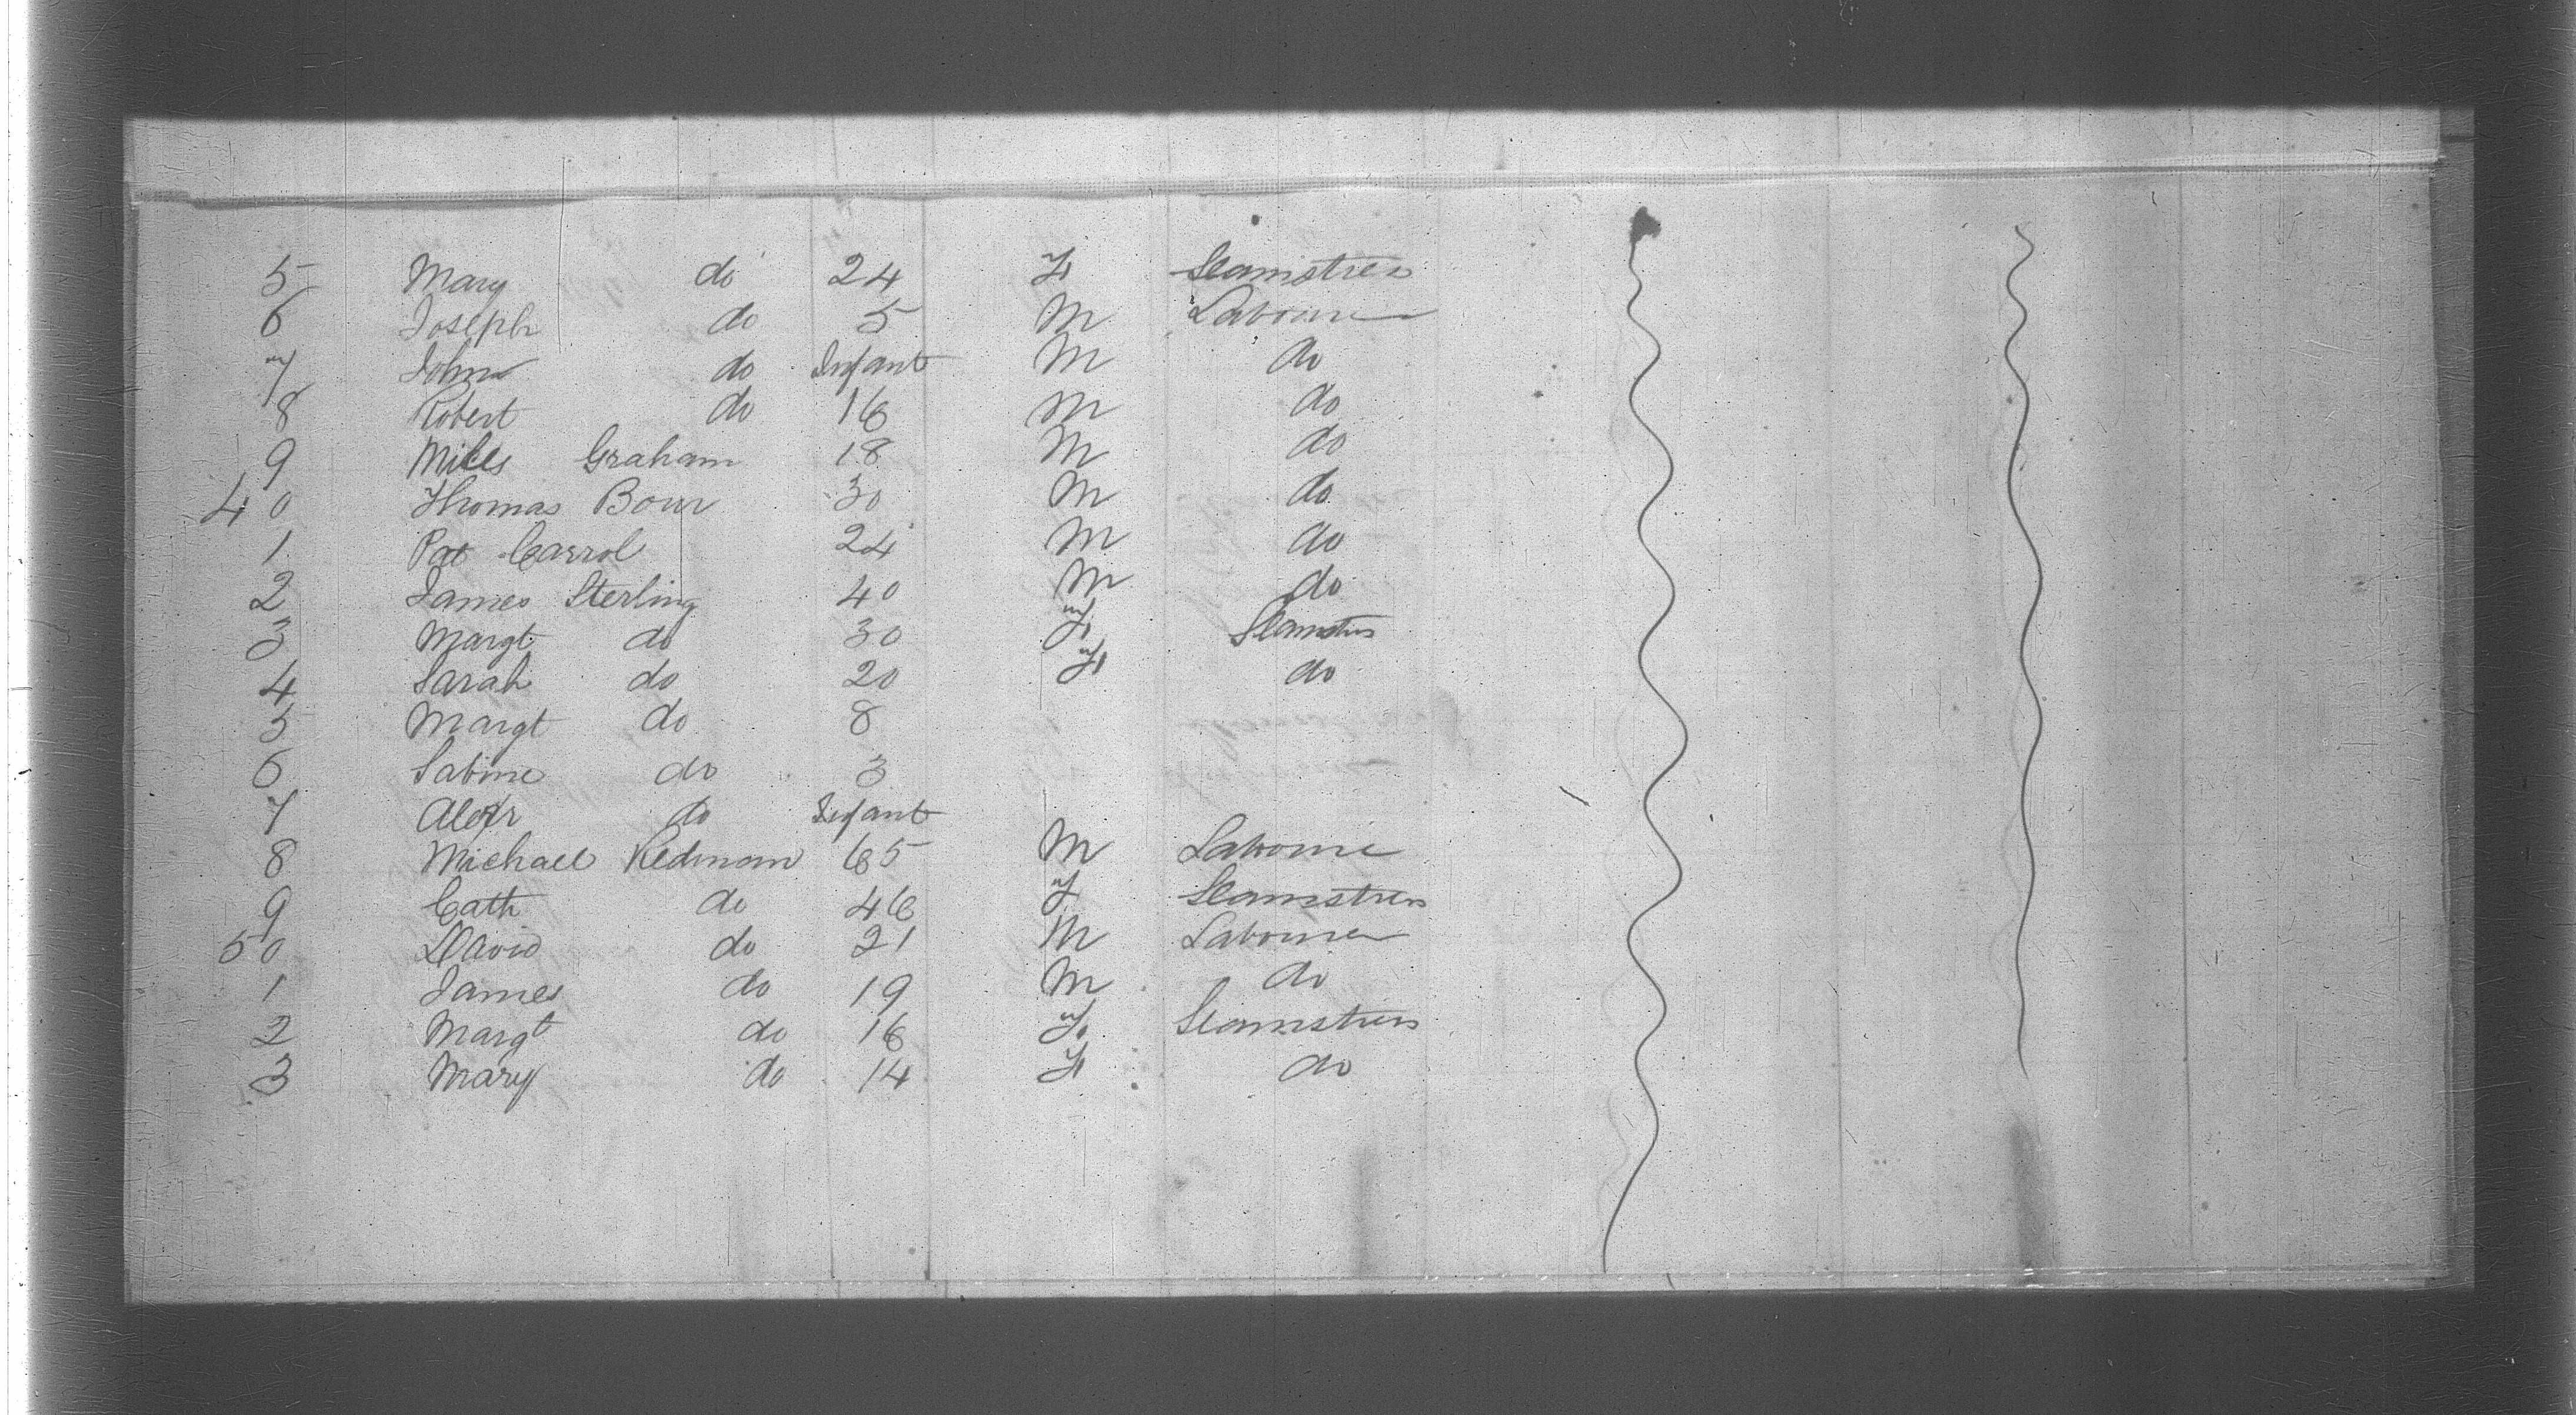 5 Mary do 24 F Seamstress
6 Joseph do 5 M Labourer
7 John do Infant M do
8 Robert do 16 M do
9 Miles Graham 18 M do
40 Thomas Bour 30 M do
1 Pat Carrol 24 M do
2 James Sterling 40 M do
3 Margt do 30 F Seamstress
4 Sarah do 20 F do
5 Margt do 8
6 Sabine do 3
7 Alexr do Infant
8 Michael Redmam 65 M Labourer
9 Cath do 46 F Seamstress
50 David do 21 M Labourer
1 James do 19 M do
2 Margt do 16 F Seamstress
3 Mary do 14 F do